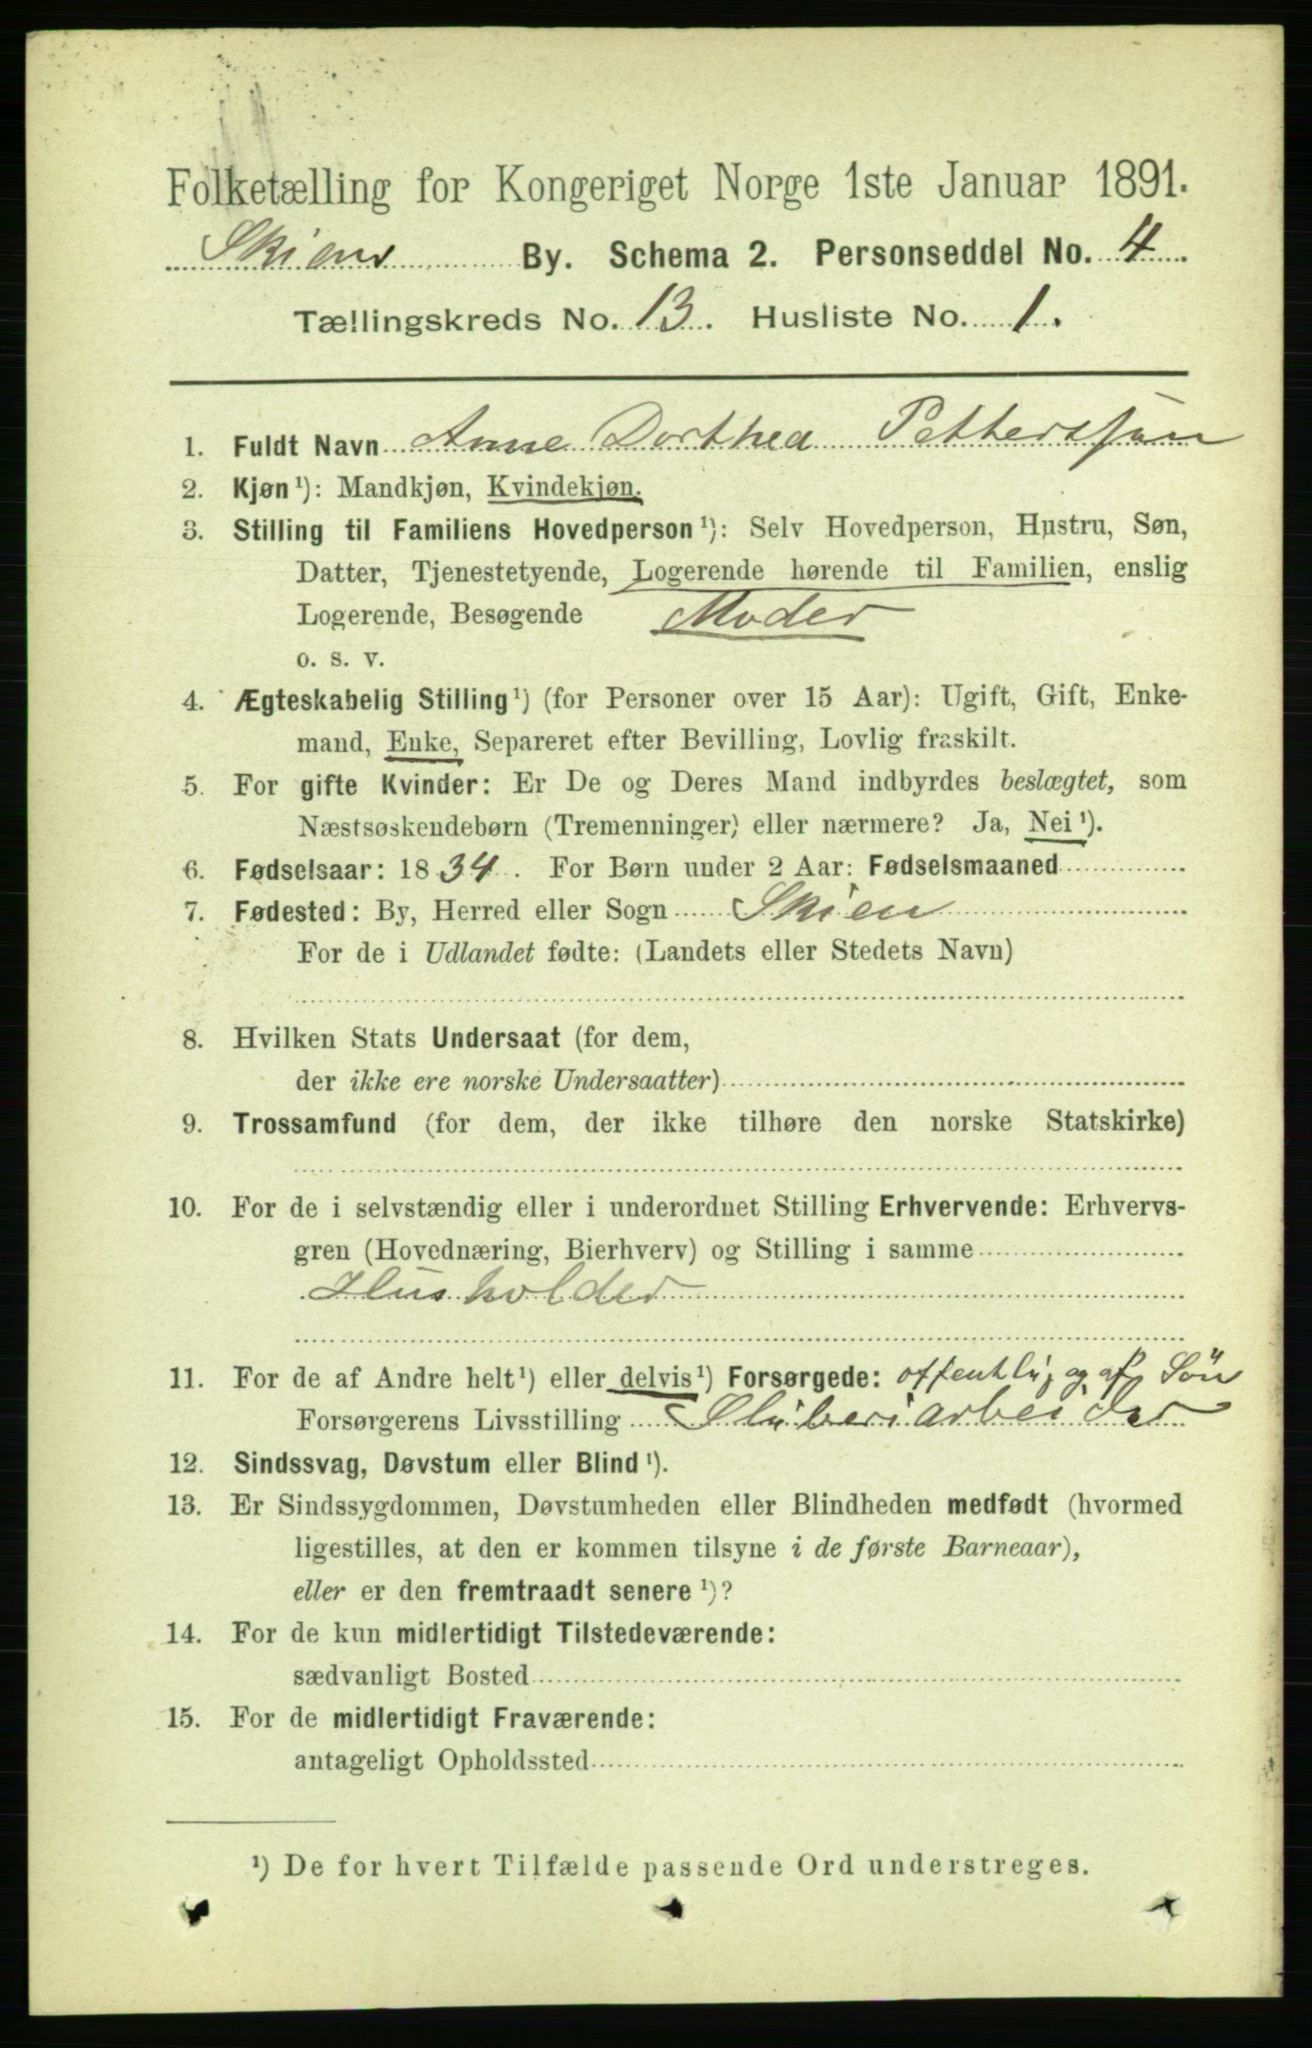 Folketælling for Kongeriget Norge 1ste Januar 1891.
Skiens By. Schema 2. Personseddel No. 4
Tællingskreds No. 13. Husliste No. 1.
1. Fuldt Navn Anne Dorthea Pettersjøn
2. Kjøn¹): Mandkjøn, Kvindekjøn.
3. Stilling til Familiens Hovedperson¹): Selv Hovedperson, Hustru, Søn,
Datter, Tjenestetyende, Logerende hørende til Familien, enslig
Logerende, Besøgende Moder
o. s. v.
4. Ægteskabelig Stilling¹) (for Personer over 15 Aar): Ugift, Gift, Enke-
mand, Enke, Separeret efter Bevilling, Lovlig fraskilt.
5. For gifte Kvinder: Er De og Deres Mand indbyrdes beslægtet, som
Næstsøskendebørn (Tremenninger) eller nærmere? Ja, Nei¹).
6. Fødselsaar: 1834. For Børn under 2 Aar: Fødselsmaaned
7. Fødested: By, Herred eller Sogn Skien
For de i Udlandet fødte: (Landets eller Stedets Navn)
8. Hvilken Stats Undersaat (for dem,
der ikke ere norske Undersaatter)
9. Trossamfund (for dem, der ikke tilhøre den norske Statskirke)
10. For de i selvstændig eller i underordnet Stilling Erhvervende: Erhvervs-
gren (Hovednæring, Bierhverv) og Stilling i samme
Husholder
11. For de af Andre helt¹) eller delvis¹) Forsørgede: offentlig og af Sön
Forsørgerens Livsstilling Sliberiarbeider
12. Sindssvag, Døvstum eller Blind¹).
13. Er Sindssygdommen, Døvstumheden eller Blindheden medfødt (hvormed
ligestilles, at den er kommen tilsyne i de første Barneaar),
eller er den fremtraadt senere¹)?
14. For de kun midlertidigt Tilstedeværende:
sædvanligt Bosted
15. For de midlertidigt Fraværende:
antageligt Opholdssted
¹) De for hvert Tilfælde passende Ord understreges.